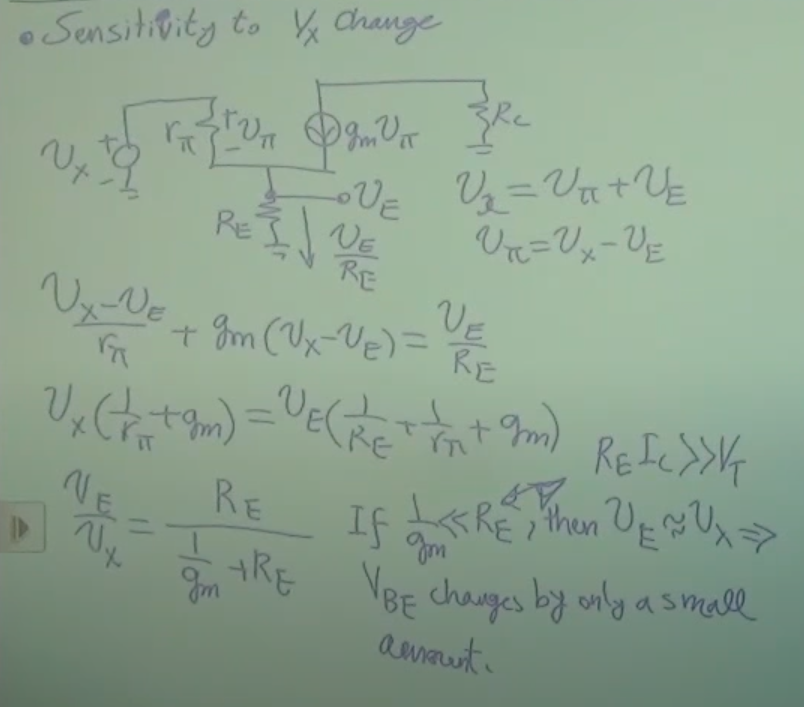 • Sensitivity to Vx Change
υx + - rπ + - υπ gm υπ Rc
RE υE υE/RE
υx = υπ + υE
υπ = υx - υE
(υx - υE)/rπ + gm(υx - υE) = υE/RE
υx(1/rπ + gm) = υE(1/RE + 1/rπ + gm)
RE IC >> VT
υE/υx = RE/(1/gm + RE) If 1/gm << RE, then υE ≈ υx ⇒
VBE changes by only a small
amount.